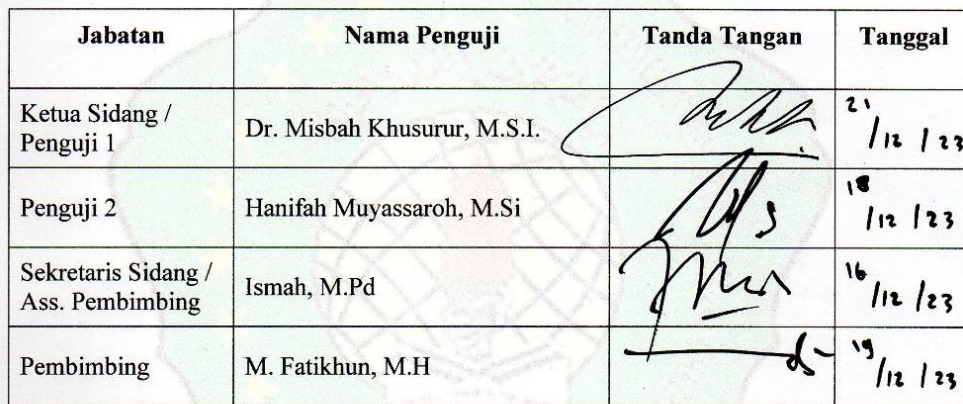 Jabatan Nama Penguji Tanda Tangan Tanggal
Ketua Sidang /
Penguji 1
Dr. Misbah Khusurur, M.S.I.
21/12/23
Penguji 2 Hanifah Muyassaroh, M.Si 18/12/23
Sekretaris Sidang /
Ass. Pembimbing
Ismah, M.Pd
16/12/23
Pembimbing M. Fatikhun, M.H 19/12/23